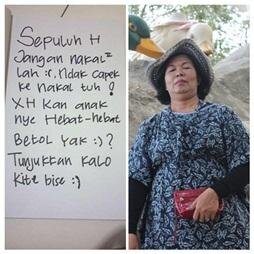 Sepuluh H
Jangan nakal²
lah :r, ndak capek
ke nakal tuh !
XH kan anak
nye Hebat-hebat
Betol yak :) ?
Tunjukkan kalo
kite bise :)